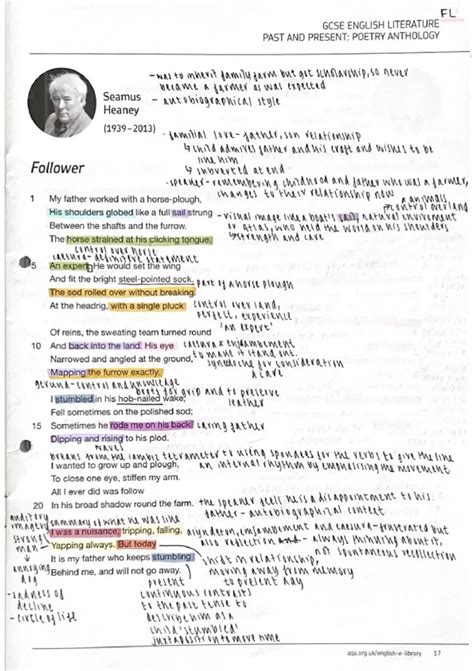 FL
GCSE ENGLISH LITERATURE
PAST AND PRESENT: POETRY ANTHOLOGY
- was to inherit family farm but got scholarship, so never
became a farmer as was expected
- autobiographical style
Seamus
Heaney
(1939 – 2013)
- familial love - father, son relationship
↳ child admires father and his craft and wishes to be
like him
↳ subverted at end
- speaker - remembering childhood and father who was a farmer,
changes to their relationship now
Follower
1 My father worked with a horse-plough,
His shoulders globed like a full sail strung
- visual image like a boat's sail, natural environment
or atlas, who held the world on his shoulders
↳ strength and care
Between the shafts and the furrow.
The horse strained at his clicking tongue.
control over horse
caesura - definitive statement
5 An expert. He would set the wing
And fit the bright steel-pointed sock.
part of a horse plough
The sod rolled over without breaking.
At the headrig, with a single pluck
control over land,
perfect, experience,
'an expert'
Of reins, the sweating team turned round
10 And back into the land. His eye
caesura + enjambement
to made it stand out.
Narrowed and angled at the ground,
synecdoche for consideration
& care
Mapping the furrow exactly.
gerund - control and knowledge
boots for grip and to preserve
leather
I stumbled in his hob-nailed wake,
Fell sometimes on the polished sod;
15 Sometimes he rode me on his back
caring father
Dipping and rising to his plod.
waves
breaks from the iambic tetrameter to using spondees for the verbs to give the line
an internal rhythm by emphasising the movement
I wanted to grow up and plough,
To close one eye, stiffen my arm.
All I ever did was follow
20 In his broad shadow round the farm.
the speaker feels he is a disappointment to his
father - autobiographical context
summary of what he was like
I was a nuisance, tripping, falling,
asyndeton, enjambement and caesura - frustrated but
also reflection - always thinking about it,
not spontaneous recollection
Yapping always. But today
It is my father who keeps stumbling
Behind me, and will not go away.
shift in relationship,
moving away from memory
to present day
auditory
imagery
strong
man
↓
annoying
dog
- sadness of
decline
- circle of life
present
continuous contrasts
to the past tense to
describe him as a
child 'stumbled'
juxtaposition to move none
aqa.org.uk/english-e-library 17